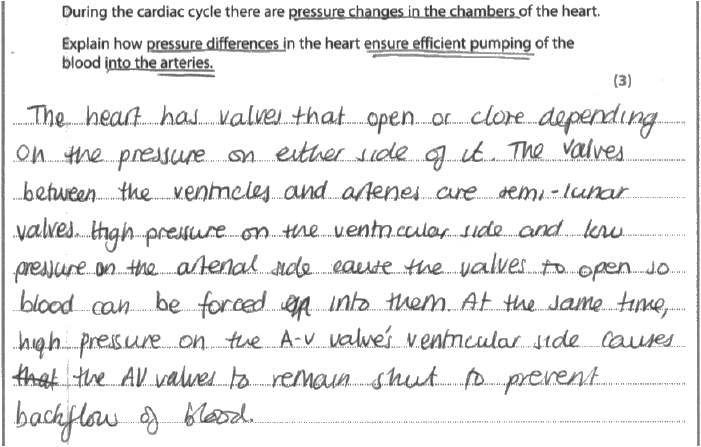 During the cardiac cycle there are pressure changes in the chambers of the heart.
Explain how pressure differences in the heart ensure efficient pumping of the
blood into the arteries.
(3)
The heart has valves that open or close depending
on the pressure on either side of it. The valves
between the ventricles and arteries are semi-lunar
valves. High pressure on the ventricular side and low
pressure on the arterial side cause the valves to open so
blood can be forced into them. At the same time,
high pressure on the A-V valve's ventricular side causes
that the AV valves to remain shut to prevent
backflow of blood.